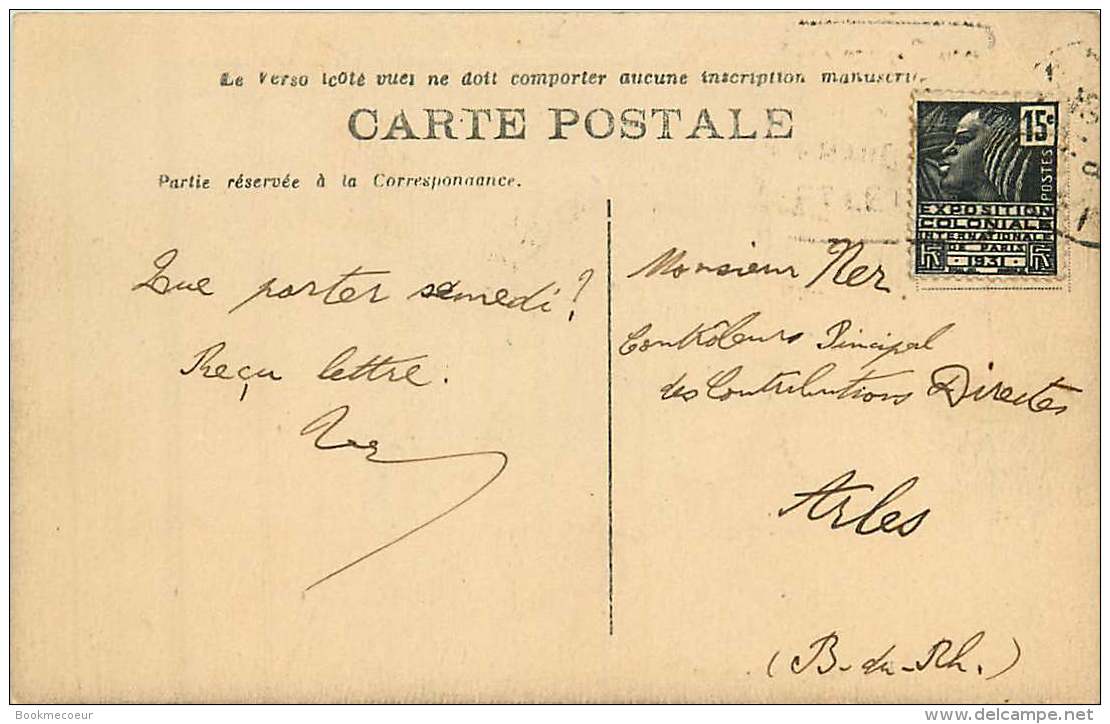 Le Verso (côté vue) ne doit comporter aucune inscription manuscrite
CARTE POSTALE
Partie réservée à la Correspondance.
Que porter samedi?
Reçu lettre.
Ner
15c
POSTES
EXPOSITION
COLONIALE
INTERNATIONALE
DE PARIS
1931
Monsieur Ner
Contrôleur Pincipal
des Contributions Directes
Arles
(B-du-Rh.)
Bookmecoeur
www.delcampe.net